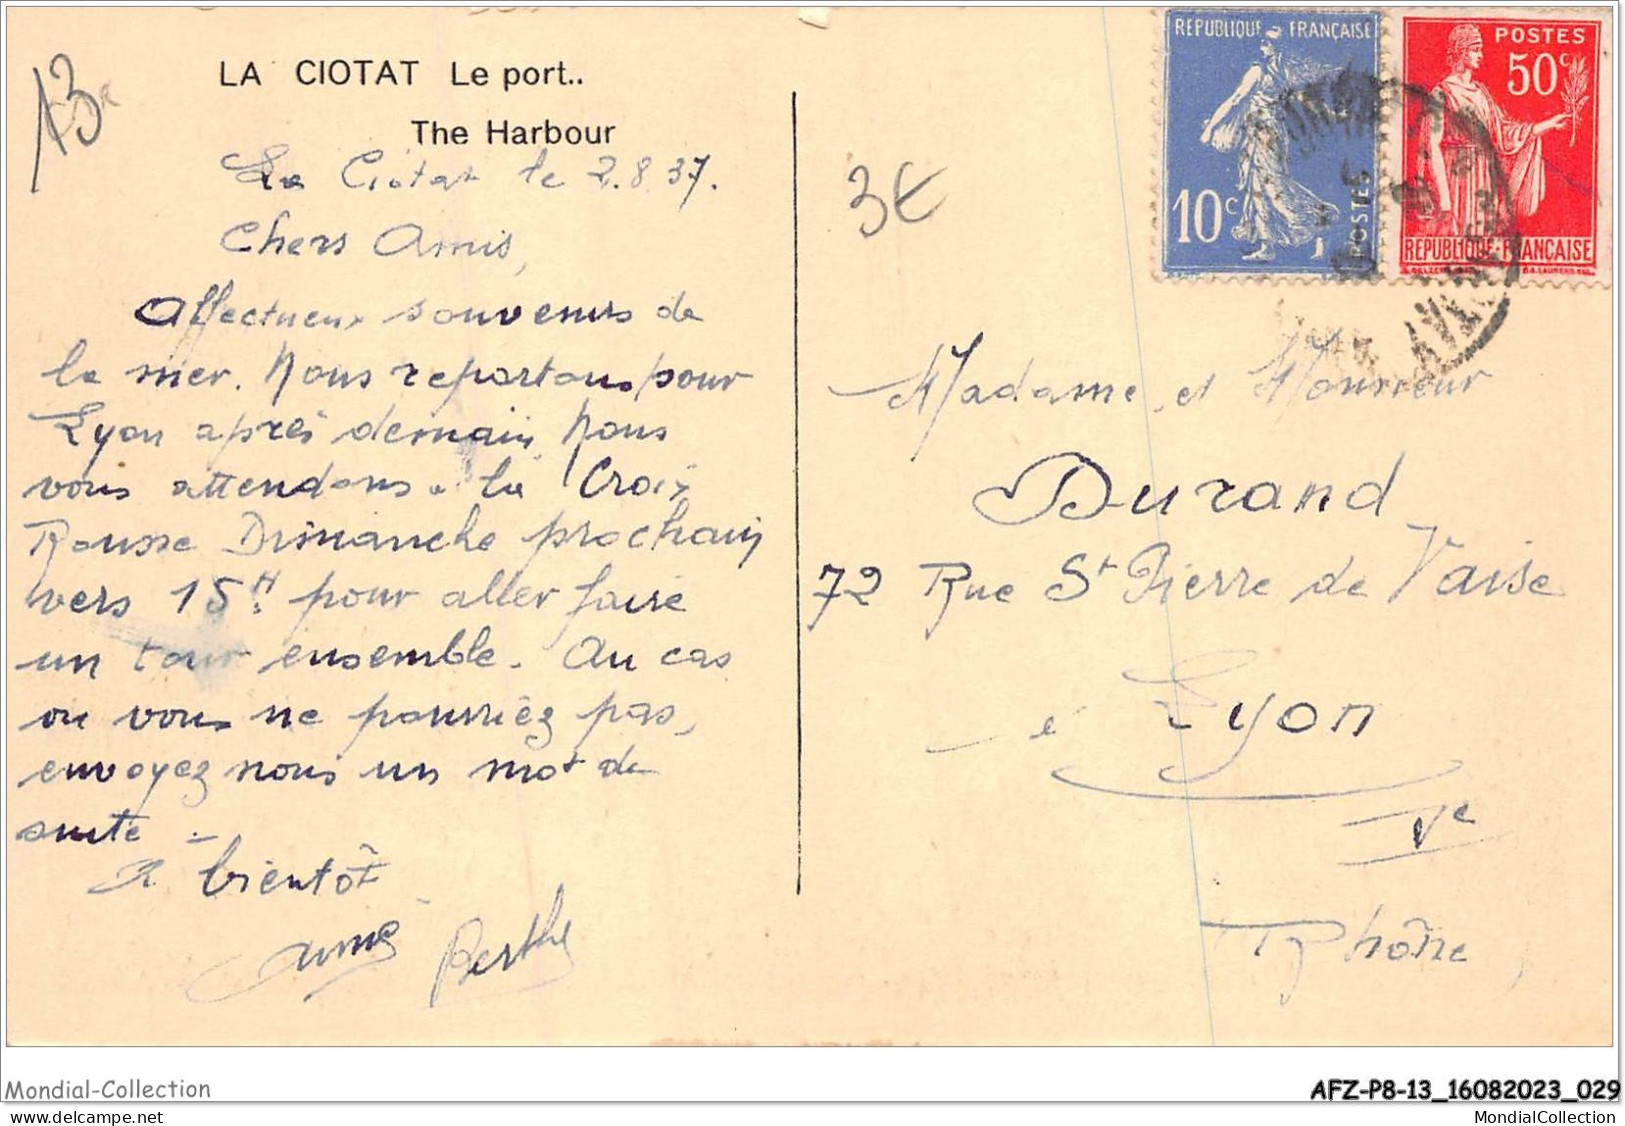 13
LA CIOTAT Le port..
The Harbour
La Ciotat le 2.8.37.
Chers Amis,
Affectueux souvenirs de
la mer. Nous repartons pour
Lyon après demain. Nous
vous attendons à la Croix
Rousse Dimanche prochain
vers 15H pour aller faire
un tour ensemble. Au cas
ou vous ne pourriez pas,
envoyez nous un mot de
suite -
A bientôt
Aimé Berthe
3€
REPUBLIQUE FRANÇAISE
10c
POSTES
POSTES
50c
REPUBLIQUE FRANÇAISE
Madame et Monsieur
Durand
72 Rue St Pierre de Vaise
à Lyon
Ve
Rhône
Mondial-Collection
AFZ-P8-13_16082023_029
www.delcampe.net
MondialCollection